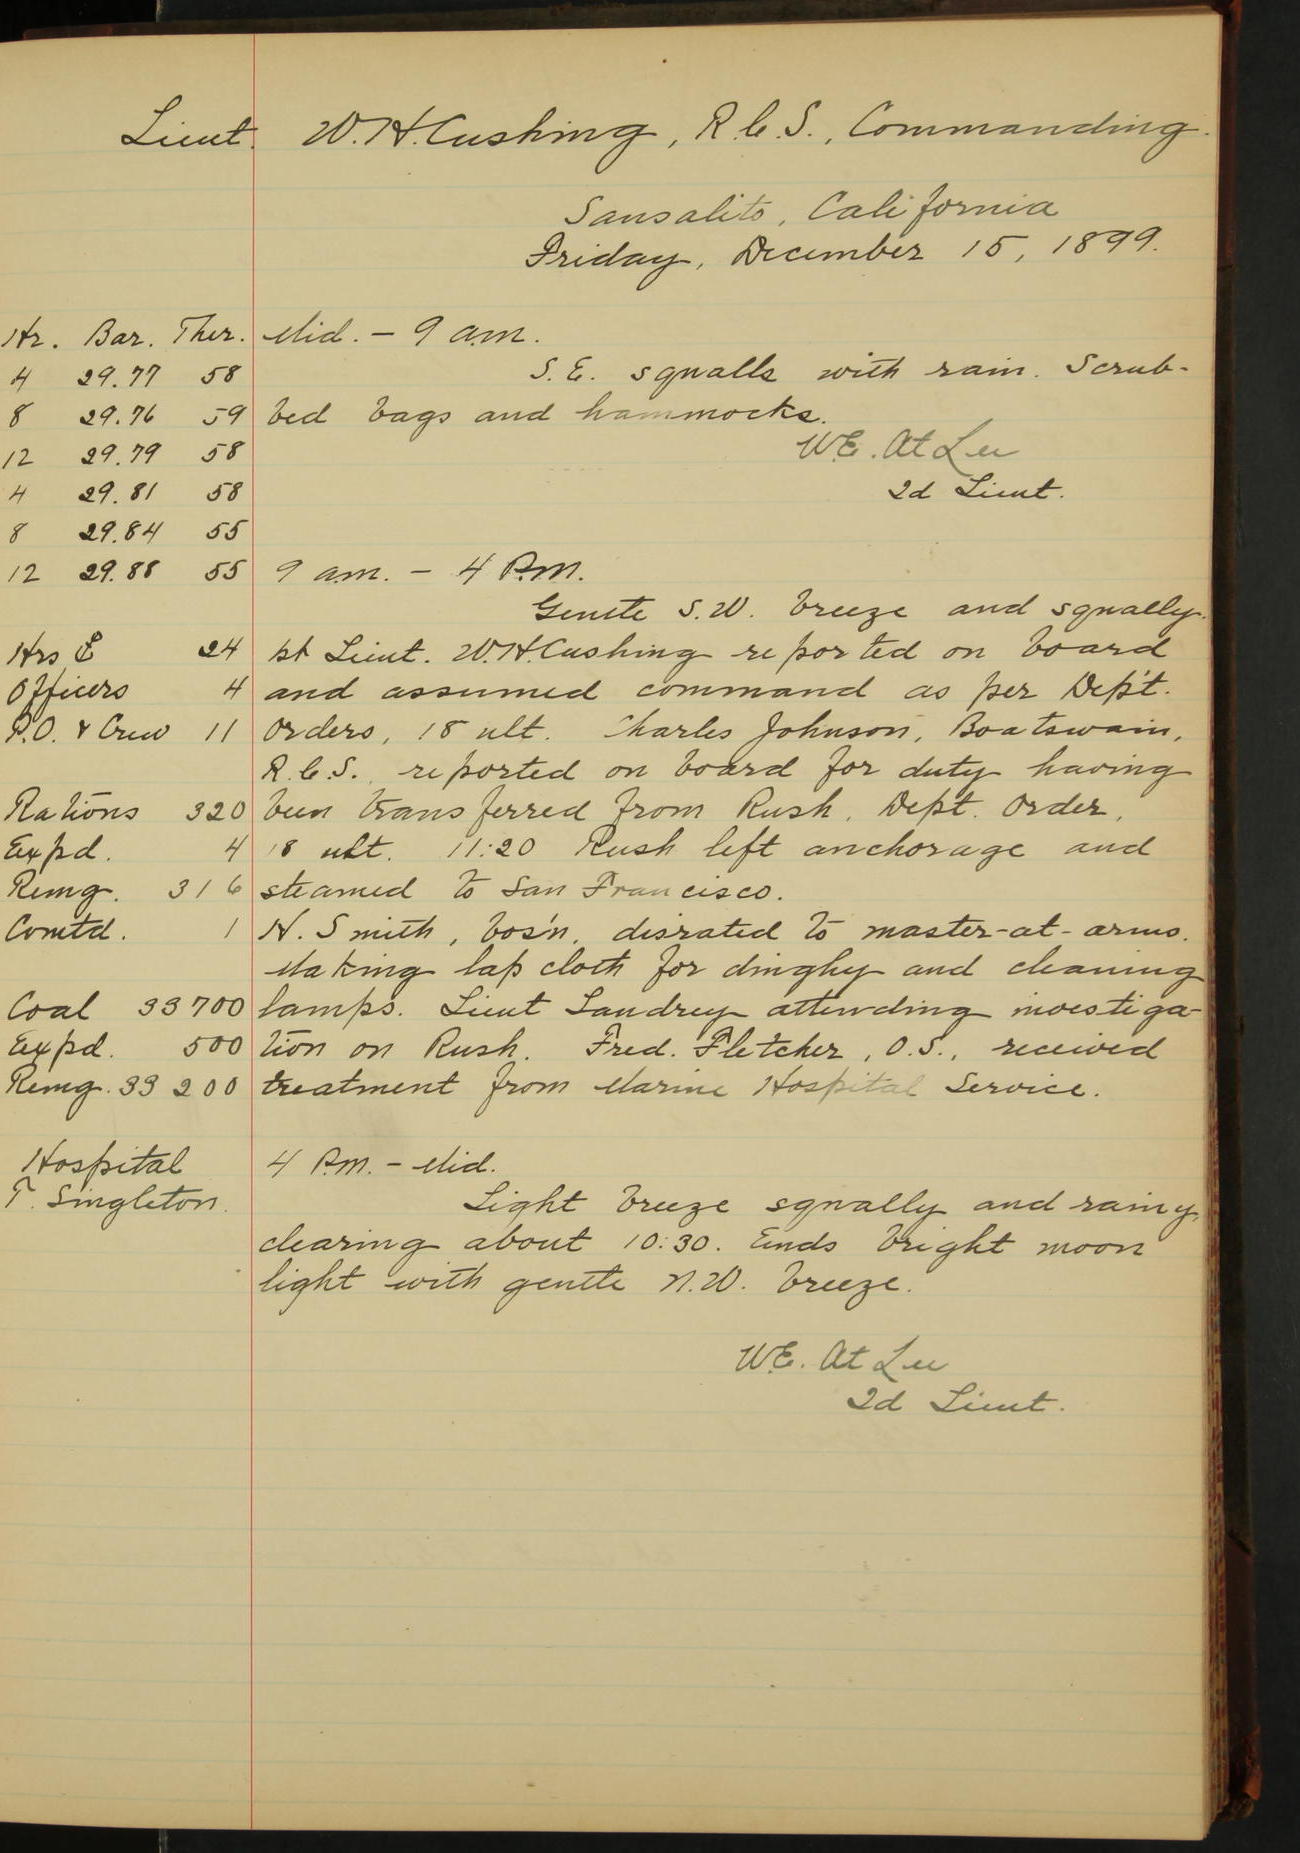 Lieut. W.H. Cushing, R.C.S., Commanding.
Sausalito, California
Friday, December 15, 1899.
Hr. Bar. Ther. Mid. – 9 a.m.
4 29.77 58 S.E. squalls with rain. Scrub-
8 29.76 59 bed bags and hammocks.
12 29.79 58 W.E. At Lee
4 29.81 58 2d Lieut.
8 29.84 55
12 29.88 55 9 a.m. – 4 P.m.
Gentle S.W. breeze and squally.
Hrs 24 1st Lieut. W.H. Cushing reported on board
Officers 4 and assumed command as per Dep't.
P.O. & Crew 11 Orders, 18 ult. Charles Johnson, Boatswain,
R.C.S., reported on board for duty having
Rations 320 been transferred from Rush, Dept. Order,
Expd. 4 18 ult. 11:20 Rush left anchorage and
Remg. 316 steamed to San Francisco.
Comtd. 1 H. Smith, bos'n, disrated to master-at-arms.
Making lap cloth for dinghy and cleaning
Coal 33700 lamps. Lieut Landrey attending investiga-
Expd. 500 tion on Rush. Fred. Fletcher, O.S., received
Remg. 33200 treatment from Marine Hospital Service.
Hospital 4 P.m. – Mid.
T. Singleton. Light breeze squally and rainy,
clearing about 10:30. Ends bright moon
light with gentle N.W. breeze.
W.E. At Lee
2d Lieut.